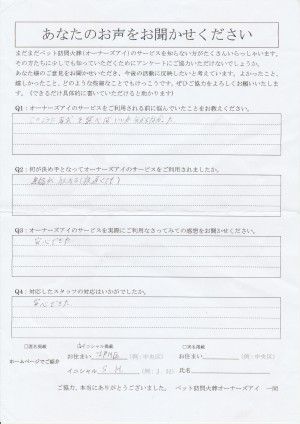 あなたのお声をお聞かせください
まだまだペット訪問火葬(オーナーズアイ)のサービスを知らない方がたくさんいらっしゃいます。
その方たちに少しでも知っていただくためにアンケートにご協力いただけないでしょうか。
あなた様のご意見をお聞かせいただき、今後の活動に反映したいと考えています。よかったこと、
嬉しかったこと、どのような些細なことでもけっこうです。ぜひご協力をよろしくお願いいたしま
す。(できるだけ具体的に書いていただけると助かります)
Q1:オーナーズアイのサービスをご利用される前に悩んでいたことをお教えください。
Q2:何が決め手となってオーナーズアイのサービスをご利用されましたか。
Q3:オーナーズアイのサービスを実際にご利用なさってみての感想をお聞かせください。
安心できた
Q4:対応したスタッフの対応はいかがでしたか。
安心できた
□匿名掲載 イニシャル掲載 □実名掲載
ホームページでご紹介 お住まい (例:中央区) お住まい (例:中央区)
イニシャル S.H. 氏名
ご協力、本当にありがとうございました。 ペット訪問火葬オーナーズアイ 一同